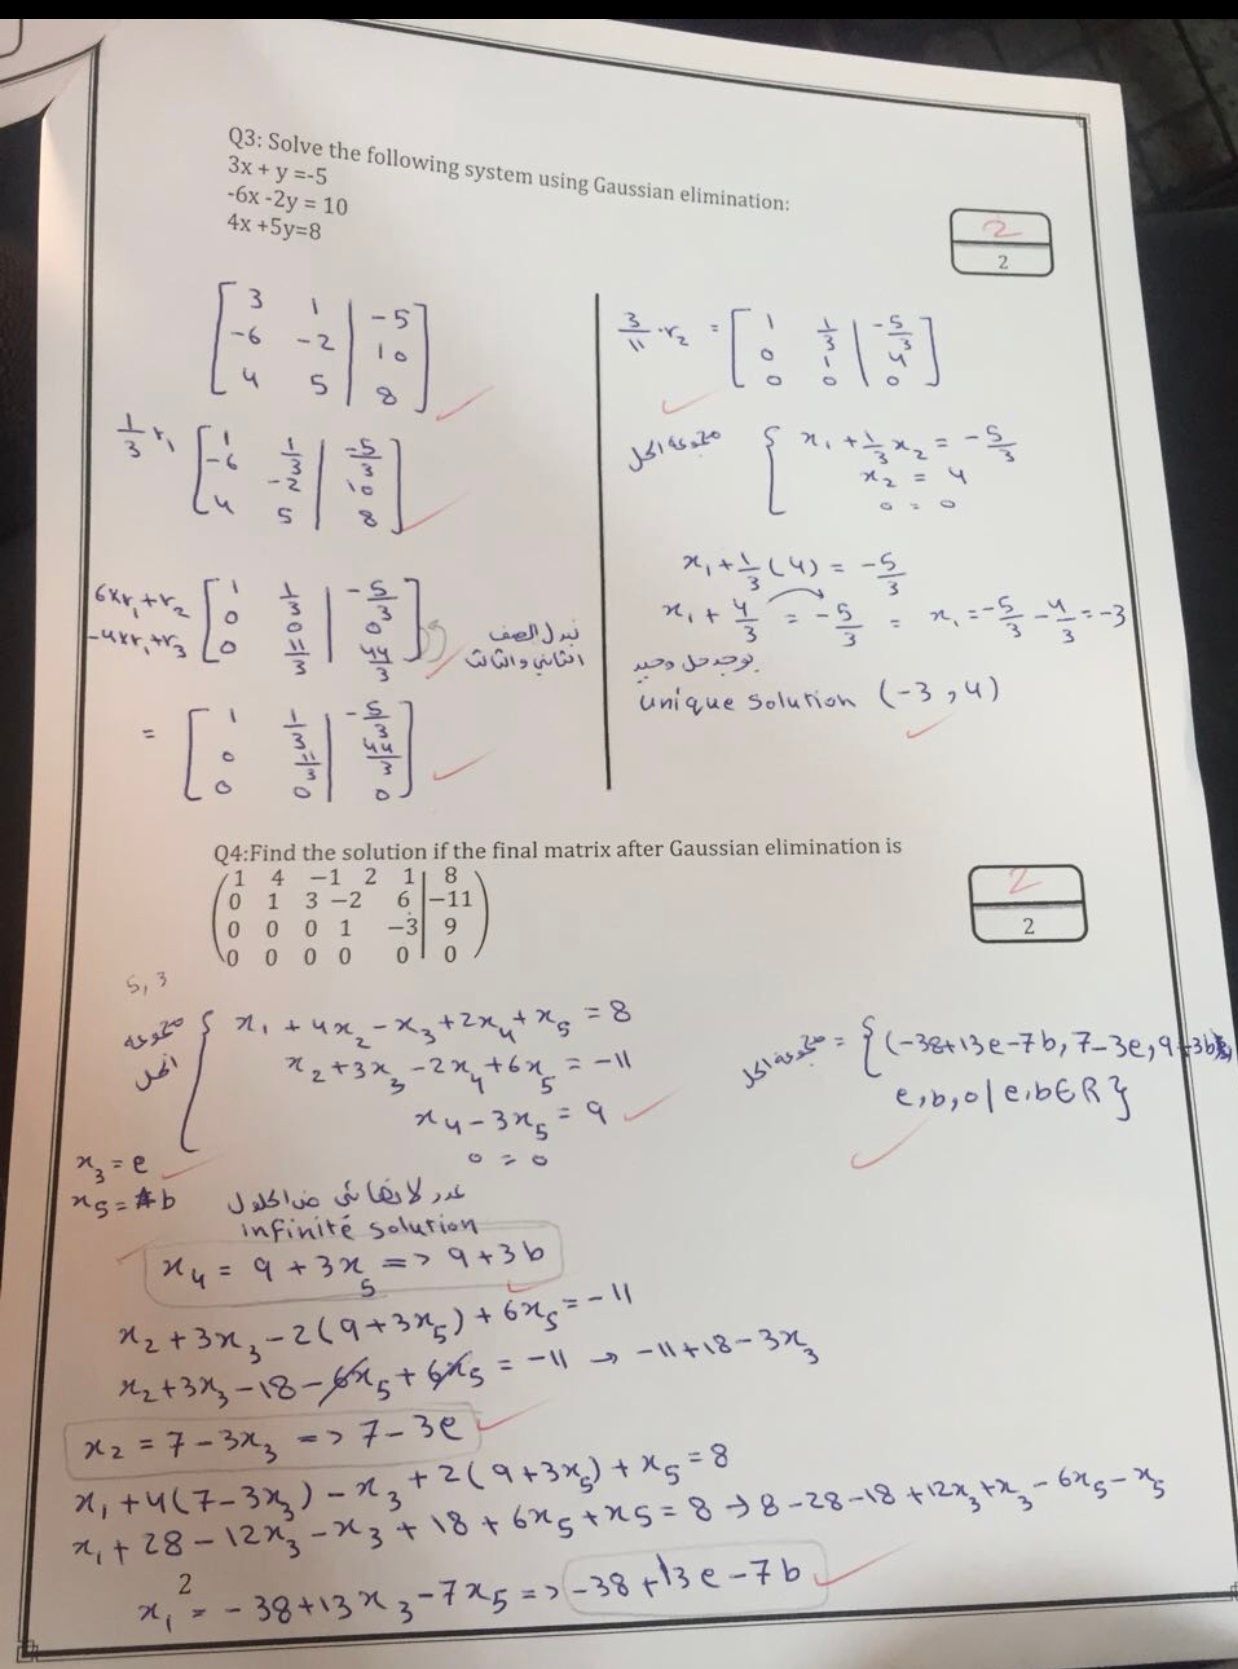 Q3: Solve the following system using Gaussian elimination:
3x + y =-5
-6x -2y = 10
4x +5y=8
2
2
[ 3 1 | -5 ]
[ -6 -2 | 10 ]
[ 4 5 | 8 ]
1/3 r₁ [ 1 1/3 | -5/3 ]
[ -6 -2 | 10 ]
[ 4 5 | 8 ]
6×r₁+r₂ [ 1 1/3 | -5/3 ]
-4×r₁+r₃ [ 0 0 | 0 ]
[ 0 11/3 | 44/3 ]
نبدل الصف
الثاني والثالث
= [ 1 1/3 | -5/3 ]
[ 0 11/3 | 44/3 ]
[ 0 0 | 0 ]
3/11 · r₂ = [ 1 1/3 | -5/3 ]
[ 0 1 | 4 ]
[ 0 0 | 0 ]
مجموعة الحل { x₁ + 1/3 x₂ = -5/3
x₂ = 4
0 = 0
x₁ + 1/3 (4) = -5/3
x₁ + 4/3 = -5/3 = x₁ = -5/3 - 4/3 = -3
يوجد حل وحيد
unique solution (-3, 4)
Q4:Find the solution if the final matrix after Gaussian elimination is
2
2
( 1 4 −1 2 1 | 8 )
( 0 1 3 −2 6 | −11 )
( 0 0 0 1 −3 | 9 )
( 0 0 0 0 0 | 0 )
5, 3
مجموعة الحل { x₁ + 4x₂ - x₃ + 2x₄ + x₅ = 8
x₂ + 3x₃ - 2x₄ + 6x₅ = -11
x₄ - 3x₅ = 9
0 = 0
x₃ = e
x₅ = b
عدد لا نهائي من الحلول
infinite solution
x₄ = 9 + 3x₅ => 9 + 3b
x₂ + 3x₃ - 2(9 + 3x₅) + 6x₅ = -11
x₂ + 3x₃ - 18 - 6x₅ + 6x₅ = -11 → -11 + 18 - 3x₃
x₂ = 7 - 3x₃ => 7 - 3e
x₁ + 4(7 - 3x₃) - x₃ + 2(9 + 3x₅) + x₅ = 8
x₁ + 28 - 12x₃ - x₃ + 18 + 6x₅ + x₅ = 8 → 8 - 28 - 18 + 12x₃ + x₃ - 6x₅ - x₅
2
x₁ = -38 + 13x₃ - 7x₅ => -38 + 13e - 7b
مجموعة الحل = { (-38+13e-7b, 7-3e, 9+3b,
e, b, 0 | e, b ∈ R }